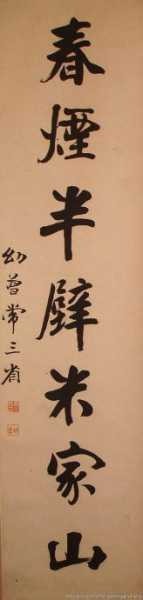 春煙半壁米家山
幼曾常三省